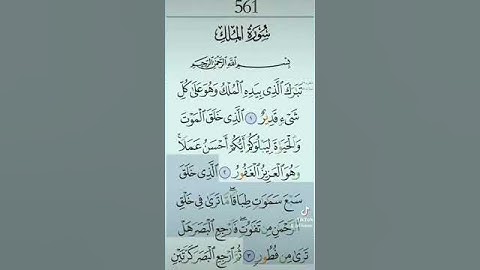 561
سُورَةُ المُلْكِ
بِسْمِ اللَّهِ الرَّحْمَٰنِ الرَّحِيمِ
تَبَٰرَكَ ٱلَّذِى بِيَدِهِ ٱلْمُلْكُ وَهُوَ عَلَىٰ كُلِّ
شَىْءٍ قَدِيرٌ ١ ٱلَّذِى خَلَقَ ٱلْمَوْتَ
وَٱلْحَيَوٰةَ لِيَبْلُوَكُمْ أَيُّكُمْ أَحْسَنُ عَمَلًا ۚ
وَهُوَ ٱلْعَزِيزُ ٱلْغَفُورُ ٢ ٱلَّذِى خَلَقَ
سَبْعَ سَمَٰوَٰتٍ طِبَاقًا ۖ مَّا تَرَىٰ فِى خَلْقِ
ٱلرَّحْمَٰنِ مِن تَفَٰوُتٍ ۖ فَٱرْجِعِ ٱلْبَصَرَ هَلْ
تَرَىٰ مِن فُطُورٍ ٣ ثُمَّ ٱرْجِعِ ٱلْبَصَرَ كَرَّتَيْنِ
TikTok